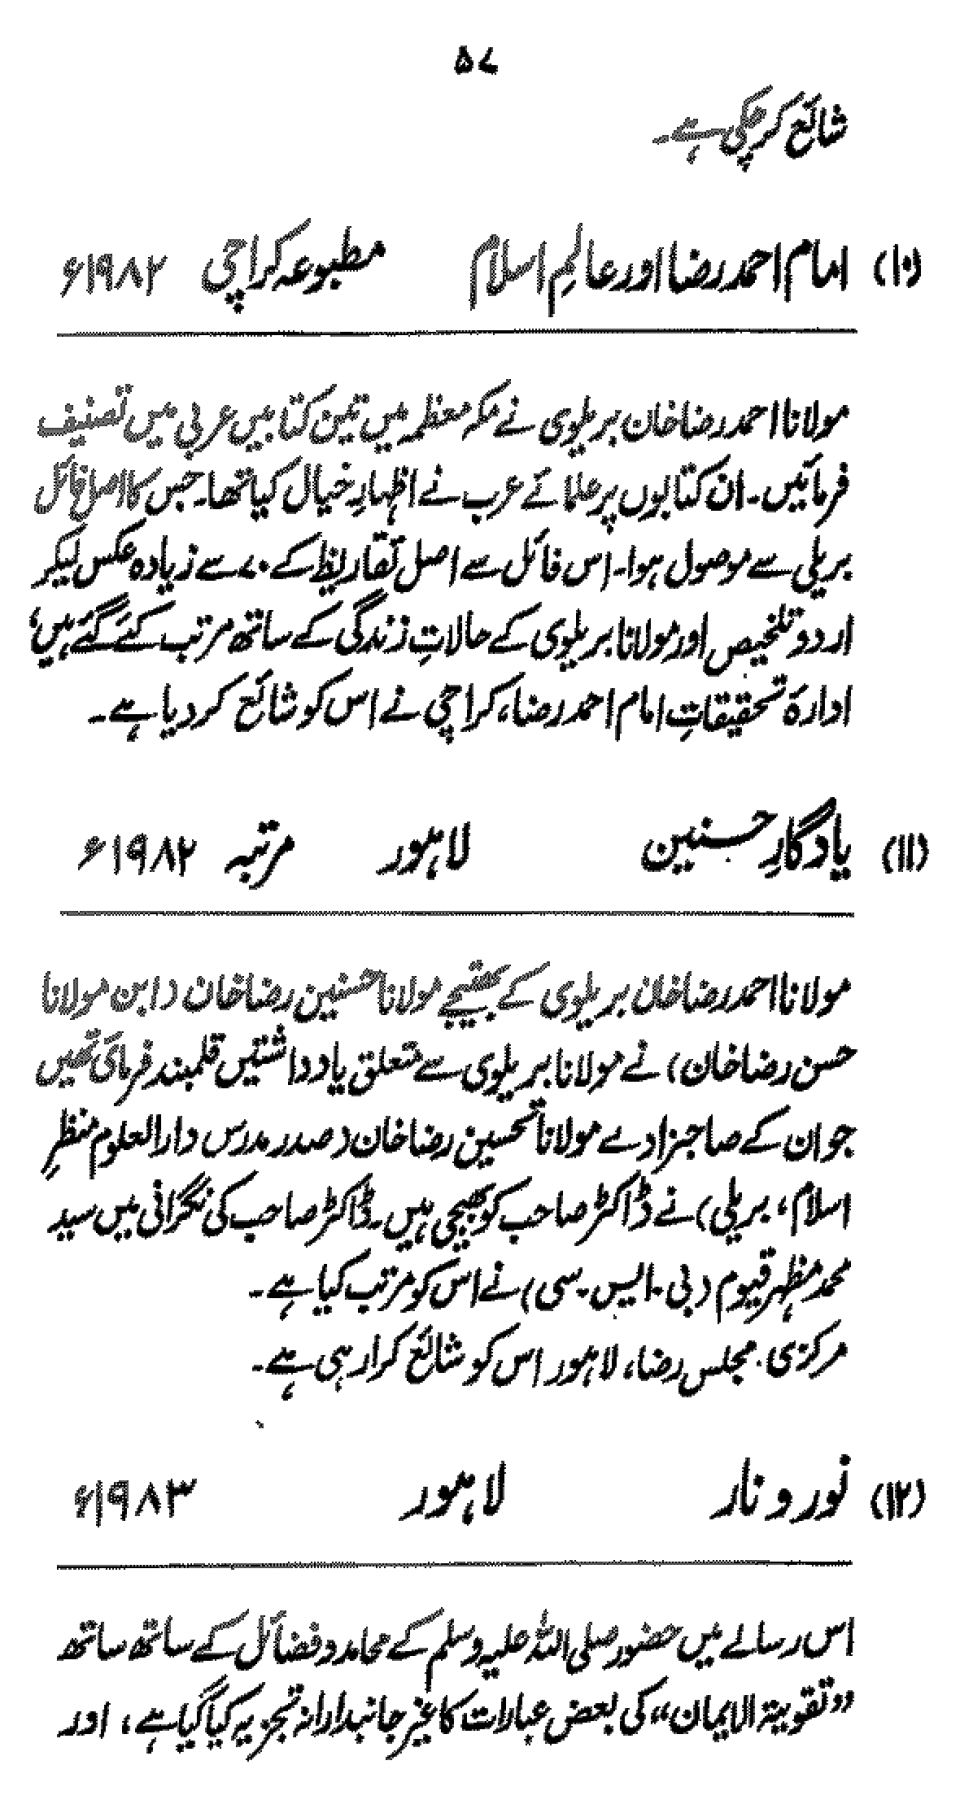 ۵۷
شائع کر چکی ہے۔
(۱۰) امام احمد رضا اور عالمِ اسلام مطبوعہ کراچی ۱۹۸۲ء
مولانا احمد رضا خان بریلوی نے مکہ معظمہ میں تین کتابیں عربی میں تصنیف
فرمائیں۔ ان کتابوں پر علمائے عرب نے اظہارِ خیال کیا تھا۔ جس کا اصل فائل
بریلی سے موصول ہوا۔ اس فائل سے اصل تقاریظ کے ۷۰ سے زیادہ عکس لیکر
اردو تلخیص اور مولانا بریلوی کے حالاتِ زندگی کے ساتھ مرتب کئے گئے ہیں،
ادارۂ تحقیقاتِ امام احمد رضا، کراچی نے اس کو شائع کر دیا ہے۔
(۱۱) یادگارِ حسنین لاہور مرتبہ ۱۹۸۲ء
مولانا احمد رضا خان بریلوی کے بھتیجے مولانا حسنین رضا خان (ابن مولانا
حسن رضا خان) نے مولانا بریلوی سے متعلق یادداشتیں قلمبند فرمائی تھیں
جو ان کے صاحبزادے مولانا تحسین رضا خان (صدر مدرس دارالعلوم منظرِ
اسلام، بریلی) نے ڈاکٹر صاحب کو بھیجی ہیں۔ ڈاکٹر صاحب کی نگرانی میں سید
محمد مظہر قیوم (بی۔ ایس۔ سی) نے اس کو مرتب کیا ہے۔
مرکزی مجلس رضا، لاہور اس کو شائع کرا رہی ہے۔
(۱۲) نور و نار لاہور ۱۹۸۳ء
اس رسالے میں حضور صلی اللہ علیہ وسلم کے محامد و فضائل کے ساتھ ساتھ
"تقویۃ الایمان" کی بعض عبارات کا غیر جانبدارانہ تجزیہ کیا گیا ہے، اور